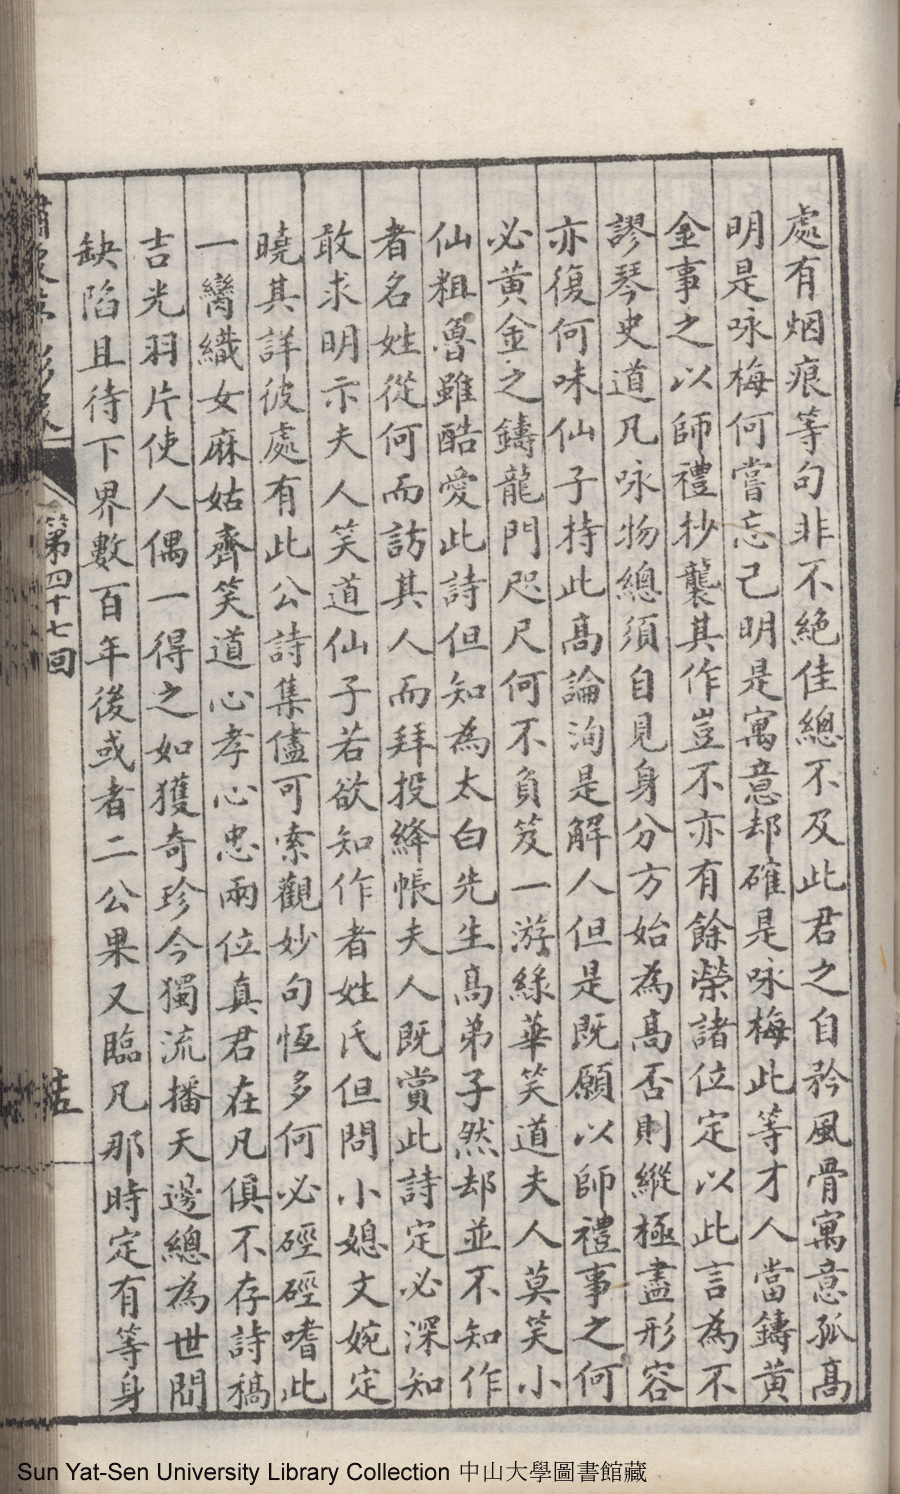 處有烟痕等句非不絶佳總不及此君之自矜風骨寓意孤高
明是咏梅何嘗忘己明是寓意却確是咏梅此等才人當鑄黃
金事之以師禮抄襲其作豈不亦有餘榮諸位定以此言為不
謬琴史道凡咏物總須自見身分方始為高否則縱極盡形容
亦復何味仙子持此高論洵是解人但是既願以師禮事之何
必黃金之鑄龍門咫尺何不負笈一游綵華笑道夫人莫笑小
仙粗魯雖酷愛此詩但知為太白先生高弟子然却並不知作
者名姓從何而訪其人而拜投絳帳夫人既賞此詩定必深知
敢求明示夫人笑道仙子若欲知作者姓氏但問小媳文婉定
曉其詳彼處有此公詩集儘可索觀妙句恆多何必硜硜嗜此
一臠織女麻姑齊笑道心孝心忠兩位真君在凡俱不存詩稿
吉光羽片使人偶一得之如獲奇珍今獨流播天邊總為世間
缺陷且待下界數百年後或者二公果又臨凡那時定有等身
第四十七回
Sun Yat-Sen University Library Collection 中山大學圖書館藏